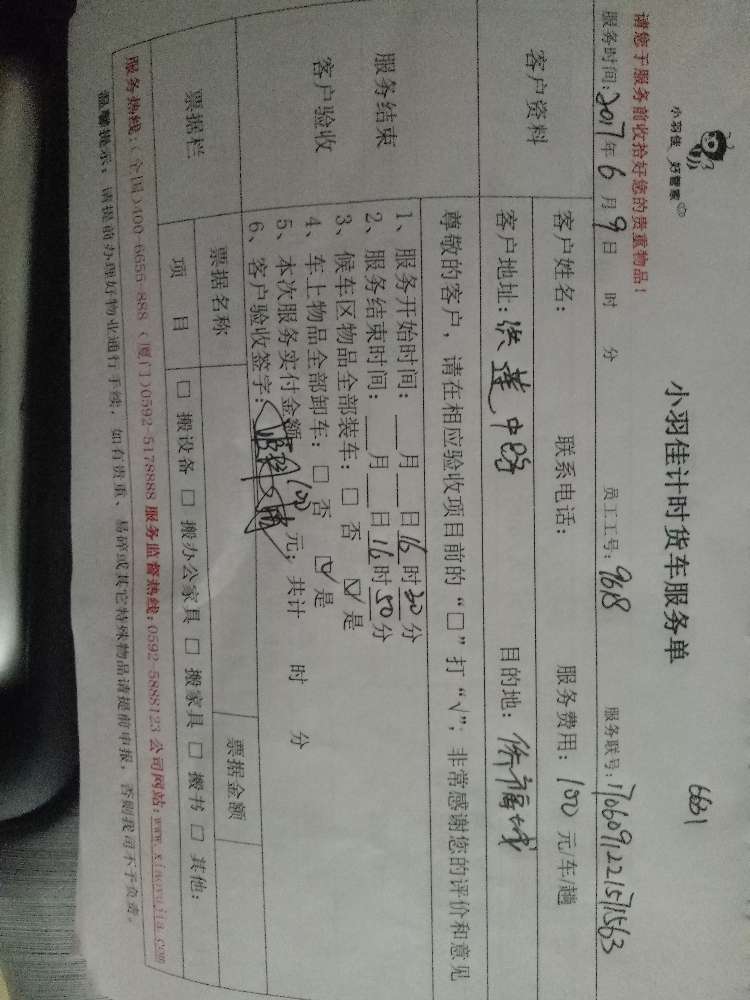 小羽佳 好管家
小羽佳计时货车服务单
6631
请您于服务前收拾好您的贵重物品！
服务时间：2017年6月9日 时 分 员工工号：9618 服务联号：170609122157563
客户资料
客户姓名： 联系电话： 服务费用：100元/车/趟
客户地址：洪莲中路 目的地：侨福城
尊敬的客户，请在相应验收项目前的“□”打“√”；非常感谢您的评价和意见
服务结束
客户验收
1、服务开始时间：__月__日16时20分
2、服务结束时间：__月__日16时50分
3、候车区物品全部装车：□ 否 ☑ 是
4、车上物品全部卸车：□ 否 ☑ 是
5、本次服务实付金额100元；共计 时 分
6、客户验收签字：
票据栏
票据名称 票据金额
项 目 □ 搬设备 □ 搬办公家具 □ 搬家具 □ 搬书 □ 其他：
服务热线：（全国）400-6655-888（厦门）0592-5178888 服务监督热线：0592-5888123 公司网站：www.xiaoyujia.com
温馨提示：请提前办理好物业通行手续，如有贵重、易碎或其它特殊物品请提前申报，否则我司不予负责。